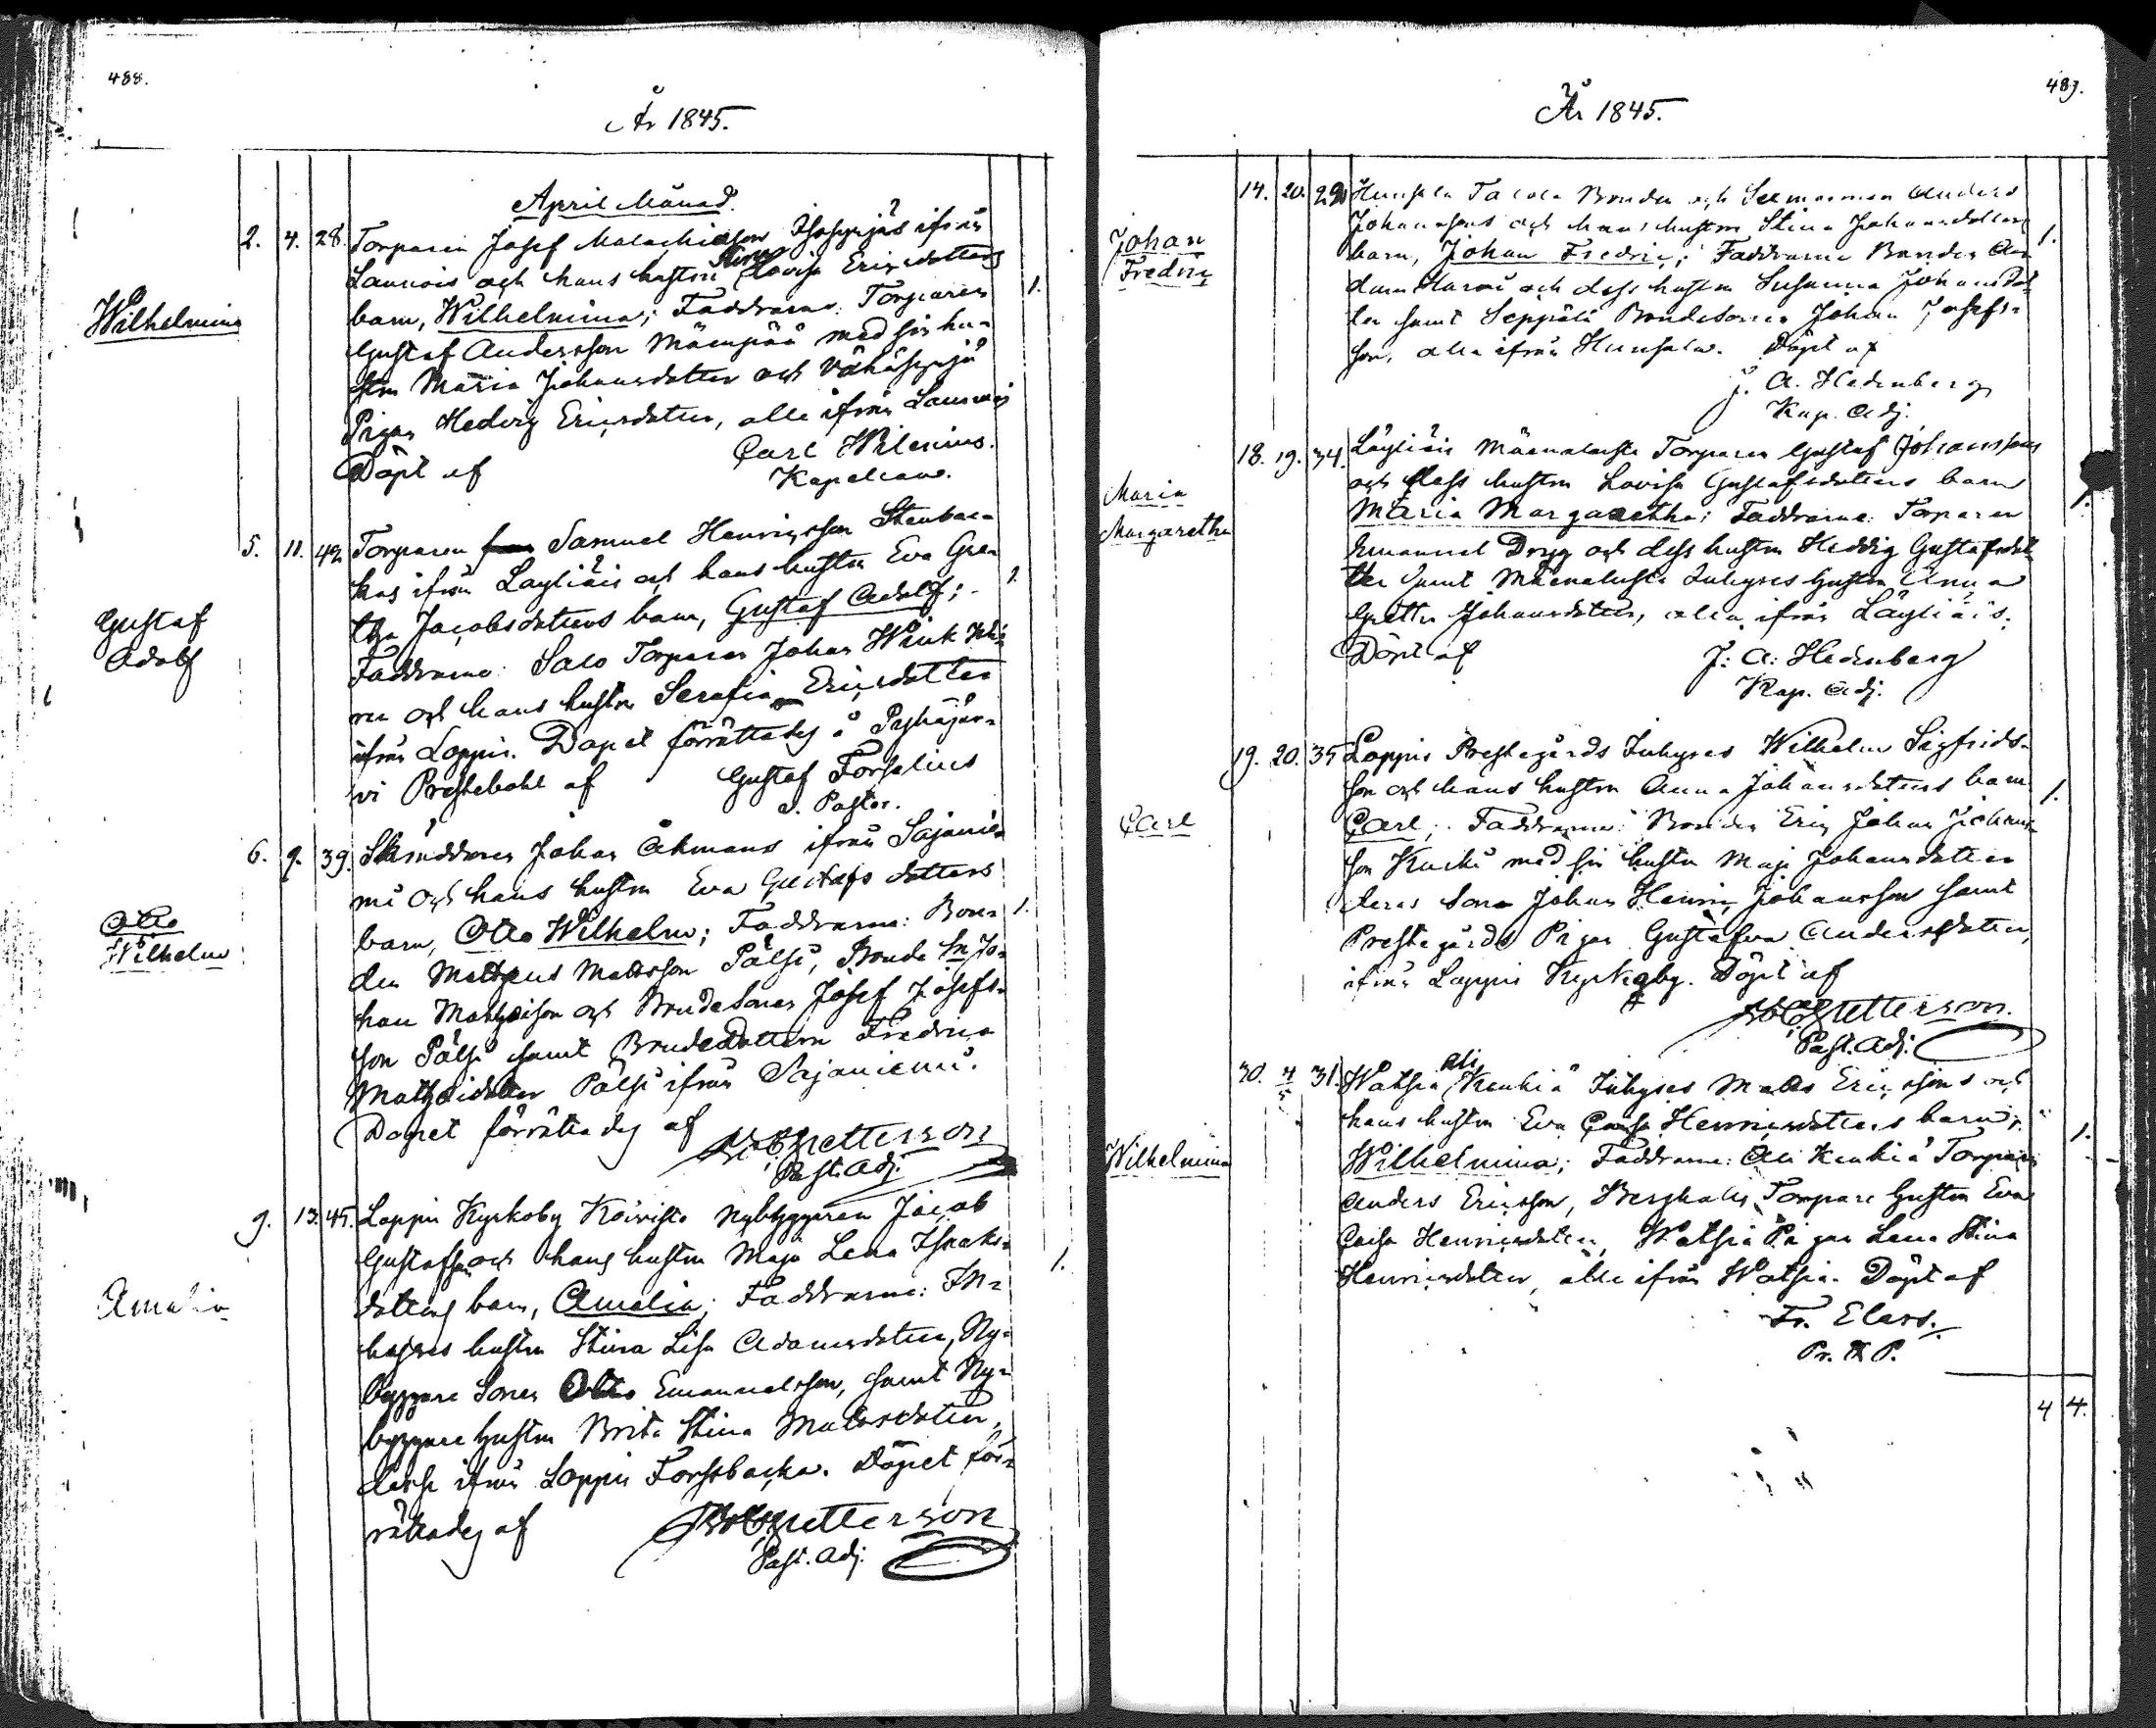 488.
År 1845.
April Månad.
2. 4. 28. Torparen Josef Malachiasson Isoseppäs ifrån
Stina
Launois och hans hustru Lovisa Ericsdotters
Wilhelmina
barn, Wilhelmina; Faddrarne: Torparen 1.
Gustaf Andersson Mäenpää med sin hu-
stru Maria Johansdotter och Vähäseppä
Pigan Hedvig Ericsdotter, alla ifrån Launois
Döpt af Carl Wilenius.
Kapellan.
5. 11. 42 Torparen Samuel Henricsson Stenbac-
kas ifrån Läyliäis och hans hustru Eva Gre- 1.
Gustaf
Adolf
tha Jacobsdotters barn, Gustaf Adolf;
Faddrarne: Salo Torparen Johan
och hans hustru Serafia Ericsdotter
ifrån Loppis. Dopet förrättades å
vi Prestebohl af Gustaf Forselius
v. Pastor.
6. 9. 39. Skräddaren Johan Åkmans ifrån Sajanie-
mi och hans hustru Eva Gustafs dotters
Otto
Wilhelm
barn, Otto Wilhelm; Faddrarne: Bon- 1.
den Matheus Mattsson Pälsi, Bonde Sn Jo-
han Matheison och BondeSonen Josef Josefs-
son Pälsi samt BondeDottern Fredrica
Matheidotter Pälsi ifrån Sajaniemi.
Dopet förrättades af Petterson
Past. Adj.
9. 13. 45. Loppis Kyrkoby Koivisto Nybyggaren Jacob
Gustafsson och hans hustru Maja Lena Isaks- 1.
Amalia
dotters barn, Amalia; Faddrarne: In-
hyses hustru Stina Lisa Adamsdotter, Ny-
byggare Sonen Otto Emanuelsson, samt Ny-
byggare hustru Brita Stina Matsdotter,
desse ifrån Loppis Forssbacka. Dopet för-
rättades af Petterson
Past. Adj.
489.
År 1845.
14. 20. 29 Hunsala Bonden och Seemannen Anders
Johan
Fredric
Johanssons och hans hustru Stina Johansdotters 1.
barn, Johan Fredric; Faddrarne Bonden
och dess hustru Susanna Johansdot-
ter samt Seppälä Bondesonen Johan Josefs-
son, alla ifrån Hunsala. Döpt af
J. A. Hedenberg
Kap. Adj.
18. 19. 34. Läyliäis Mäenalusta Torparen Gustaf Johanssons
och dess hustru Lovisa Gustafsdotters barn
Maria
Margaretha
Maria Margaretha; Faddrarne: Torparen 1.
Emanuel Drygg och dess hustru Hedvig Gustafsdot-
ter samt Mäenalusta Inhyses hustru Anna
Gretta Johansdotter, alla ifrån Läyliäis.
Döpt af J: A: Hedenberg
Kap. Adj.
19. 20. 35 Loppis Prestegårds Inhyses Wilhelm Sigfrids-
son och hans hustru Anna Johansdotters barn 1.
Carl
Carl; Faddrarne: Bonden Eric Johan Johans-
son med sin hustru Maja Johansdotter
deras Son Johan Henric Johansson samt
Prestegårds Pigan Gustafva Andersdotter,
ifrån Loppis Kyrkoby. Döpt af
Petterson.
Past. Adj.
30. 4/5 31. Watsia Ali Kenkiä Inhyses Matts Ericssons och
hans hustru Eva Caisa Henricsdotters barn; 1.
Wilhelmina
Wilhelmina; Faddrarne: Ali Kenkiä Torparen
Anders Ericsson, Torpare hustru Eva
Caisa Henricsdotter, Watsia Pigan Lena Stina
Henricsdotter, alla ifrån Watsia. Döpt af
Fr. Elers.
Pr. P.
4 4.